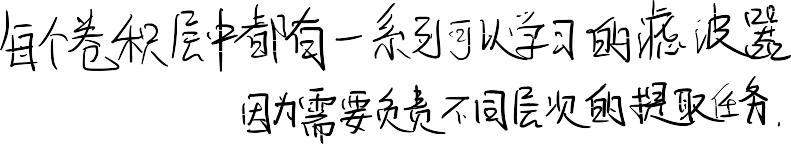 每个卷积层中都有一系列可以学习的滤波器
因为需要负责不同层次的提取任务.